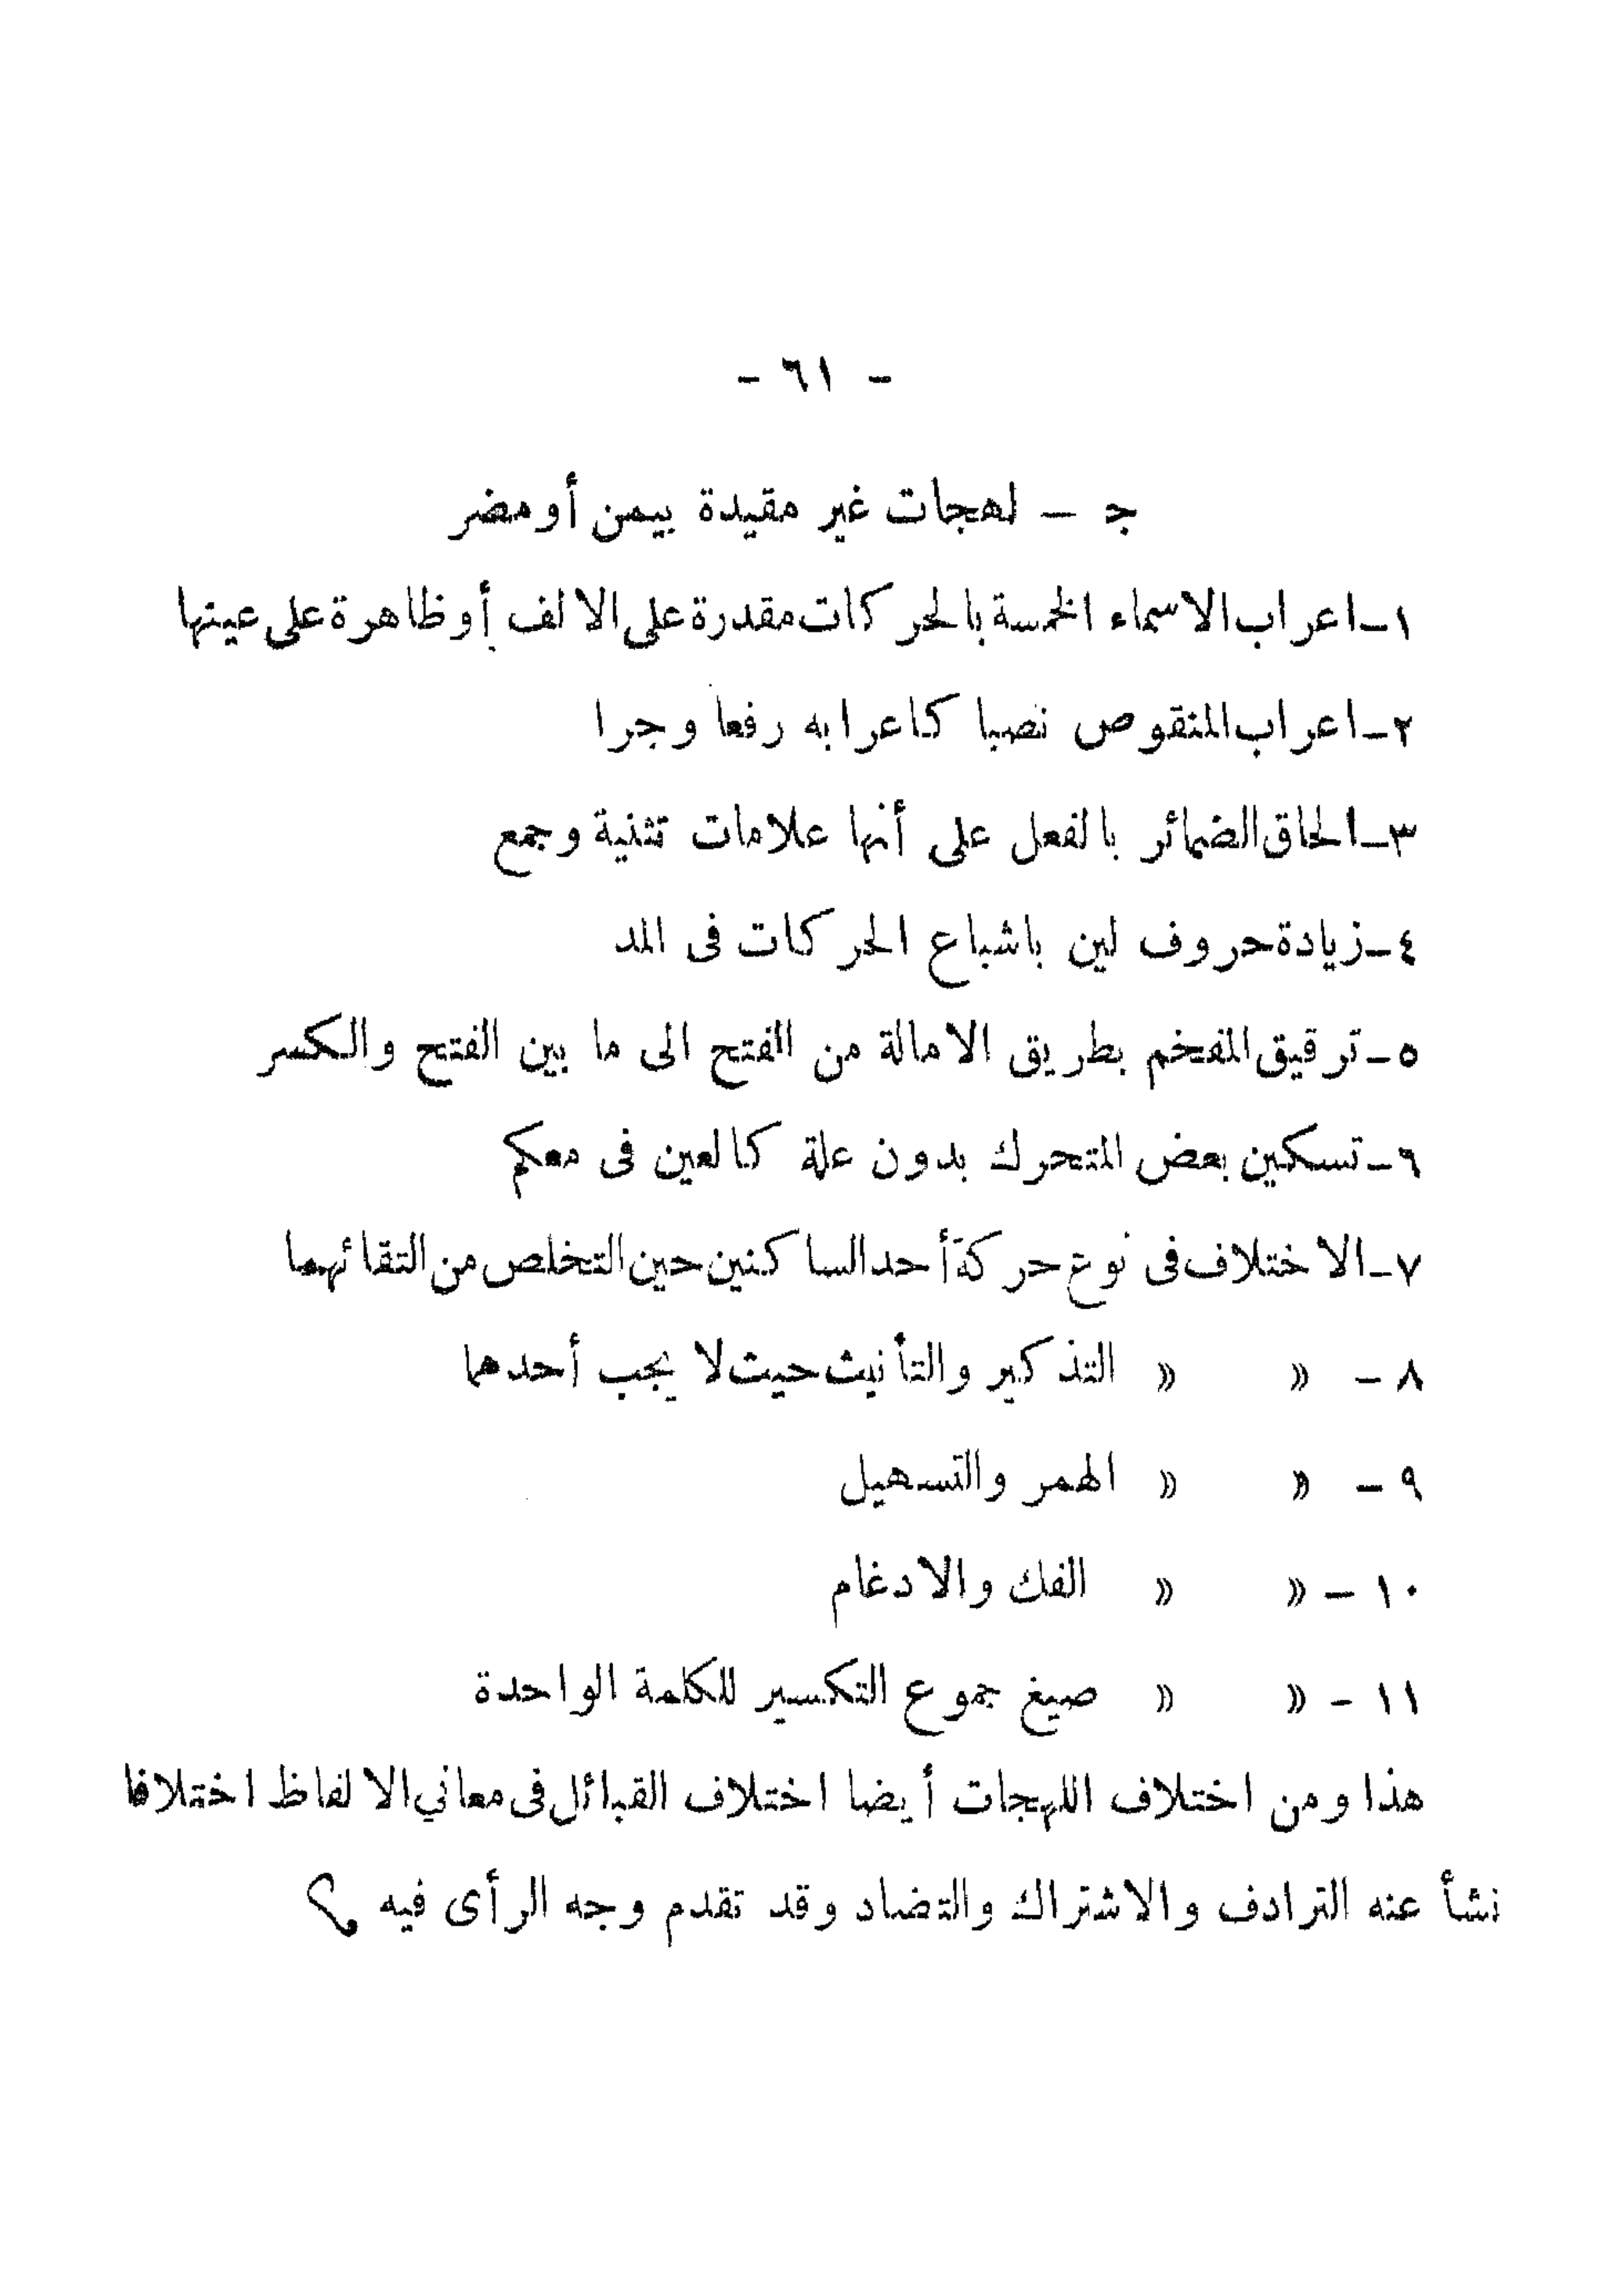 - ٦١ -
ج - لهجات غير مقيدة بيمن أو مضر
١ - اعراب الاسماء الخمسة بالحركات مقدرة على الالف أو ظاهرة على عينها
٢ - اعراب المنقوص نصبا كاعرابه رفعا وجرا
٣ - الحاق الضمائر بالفعل على أنها علامات تثنية وجمع
٤ - زيادة حروف لين باشباع الحركات فى المد
٥ - ترقيق المفخم بطريق الامالة من الفتح الى ما بين الفتح والكسر
٦ - تسكين بعض المتحرك بدون علة كالعين فى معكم
٧ - الاختلاف فى نوع حركة أحد الساكنين حين التخلص من التقائهما
٨ - » » التذكير والتأنيث حيث لا يجب أحدهما
٩ - » » الهمر والتسهيل
١٠ - » » الفك والادغام
١١ - » » صيغ جموع التكسير للكلمة الواحدة
هذا ومن اختلاف اللهجات أيضا اختلاف القبائل فى معاني الالفاظ اختلافا
نشأ عنه الترادف والاشتراك والتضاد وقد تقدم وجه الرأى فيه